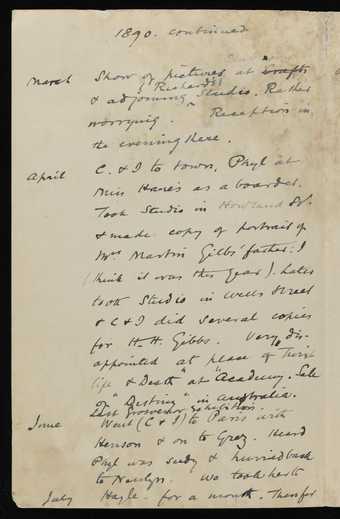 1890. continued
March Show of pictures at Crafts
& adjoining Richards' Studio. Rather
worrying. Reception in
the evening there.
April C. & I to town, Phyl at
Miss Hare's as a boarder.
Took Studio in Howland St.
& made copy of portrait of
Mrs Martin Gibbs' father: I
(think it was this year). Later
took Studio in Wells Street
& C & I did several copies
for H. H. Gibbs. Very dis-
appointed at place of
life & Death" at "Academy. Sale
of "Destiny" in australia.
Last Grosvenor exhibition.
June Went (C & I) to Paris with
Henson & on to Grez. Heard
Phyl was seedy & hurried back
to Newlyn. We took her to
July Hayle for a month. Then for